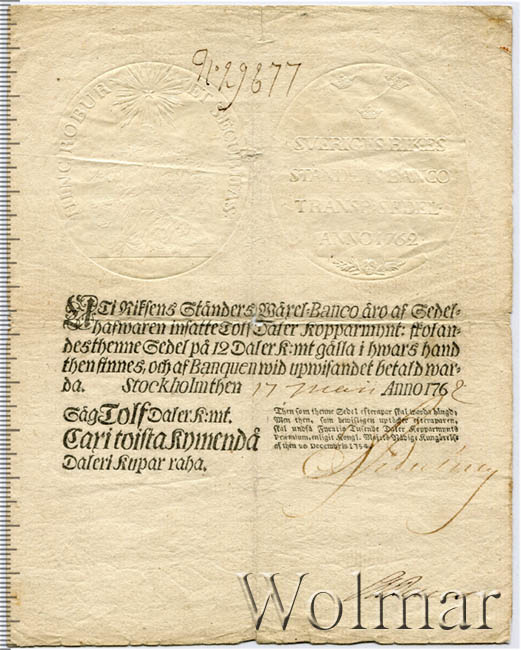 N: 29677
HINC ROBUR ET SECURITAS
SVERIGES RIKES
STÄNDERS BANCO
TRANSP: SEDEL
ANNO 1762
ATi Riksens Ständers Wäxel-Banco äro af Sedel-
hafwaren insatte Tolf Daler Kopparmynt: skolan-
des thenne Sedel på 12 Daler K:mt gälla i hwars hand
then finnes, och af Banquen wid upwisandet betald war-
da. Stockholm then 17 Maii Anno 1762
Säg Tolf Daler K:mt.
Caxi toista kymendå
Daleri Kupar raha.
Then som thenne Sedel efterapar skal warda hängd;
Men then, som bewisligen uptäcker efteraparen,
skal undfå Fyratio Tusende Daler Kopparmynt i
Præmium, enligit Kongl. Maj:ts Nådige Kungörelse
af then
Wolmar